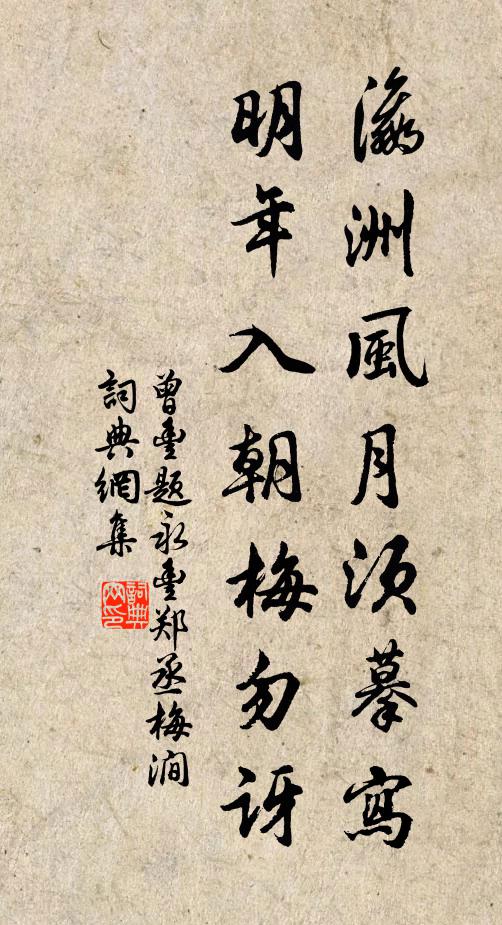 瀛洲風月須摹寫
明年入朝梅勿訝
曾豊題永豊郑丞梅澗
詞典網集
詞典
网印